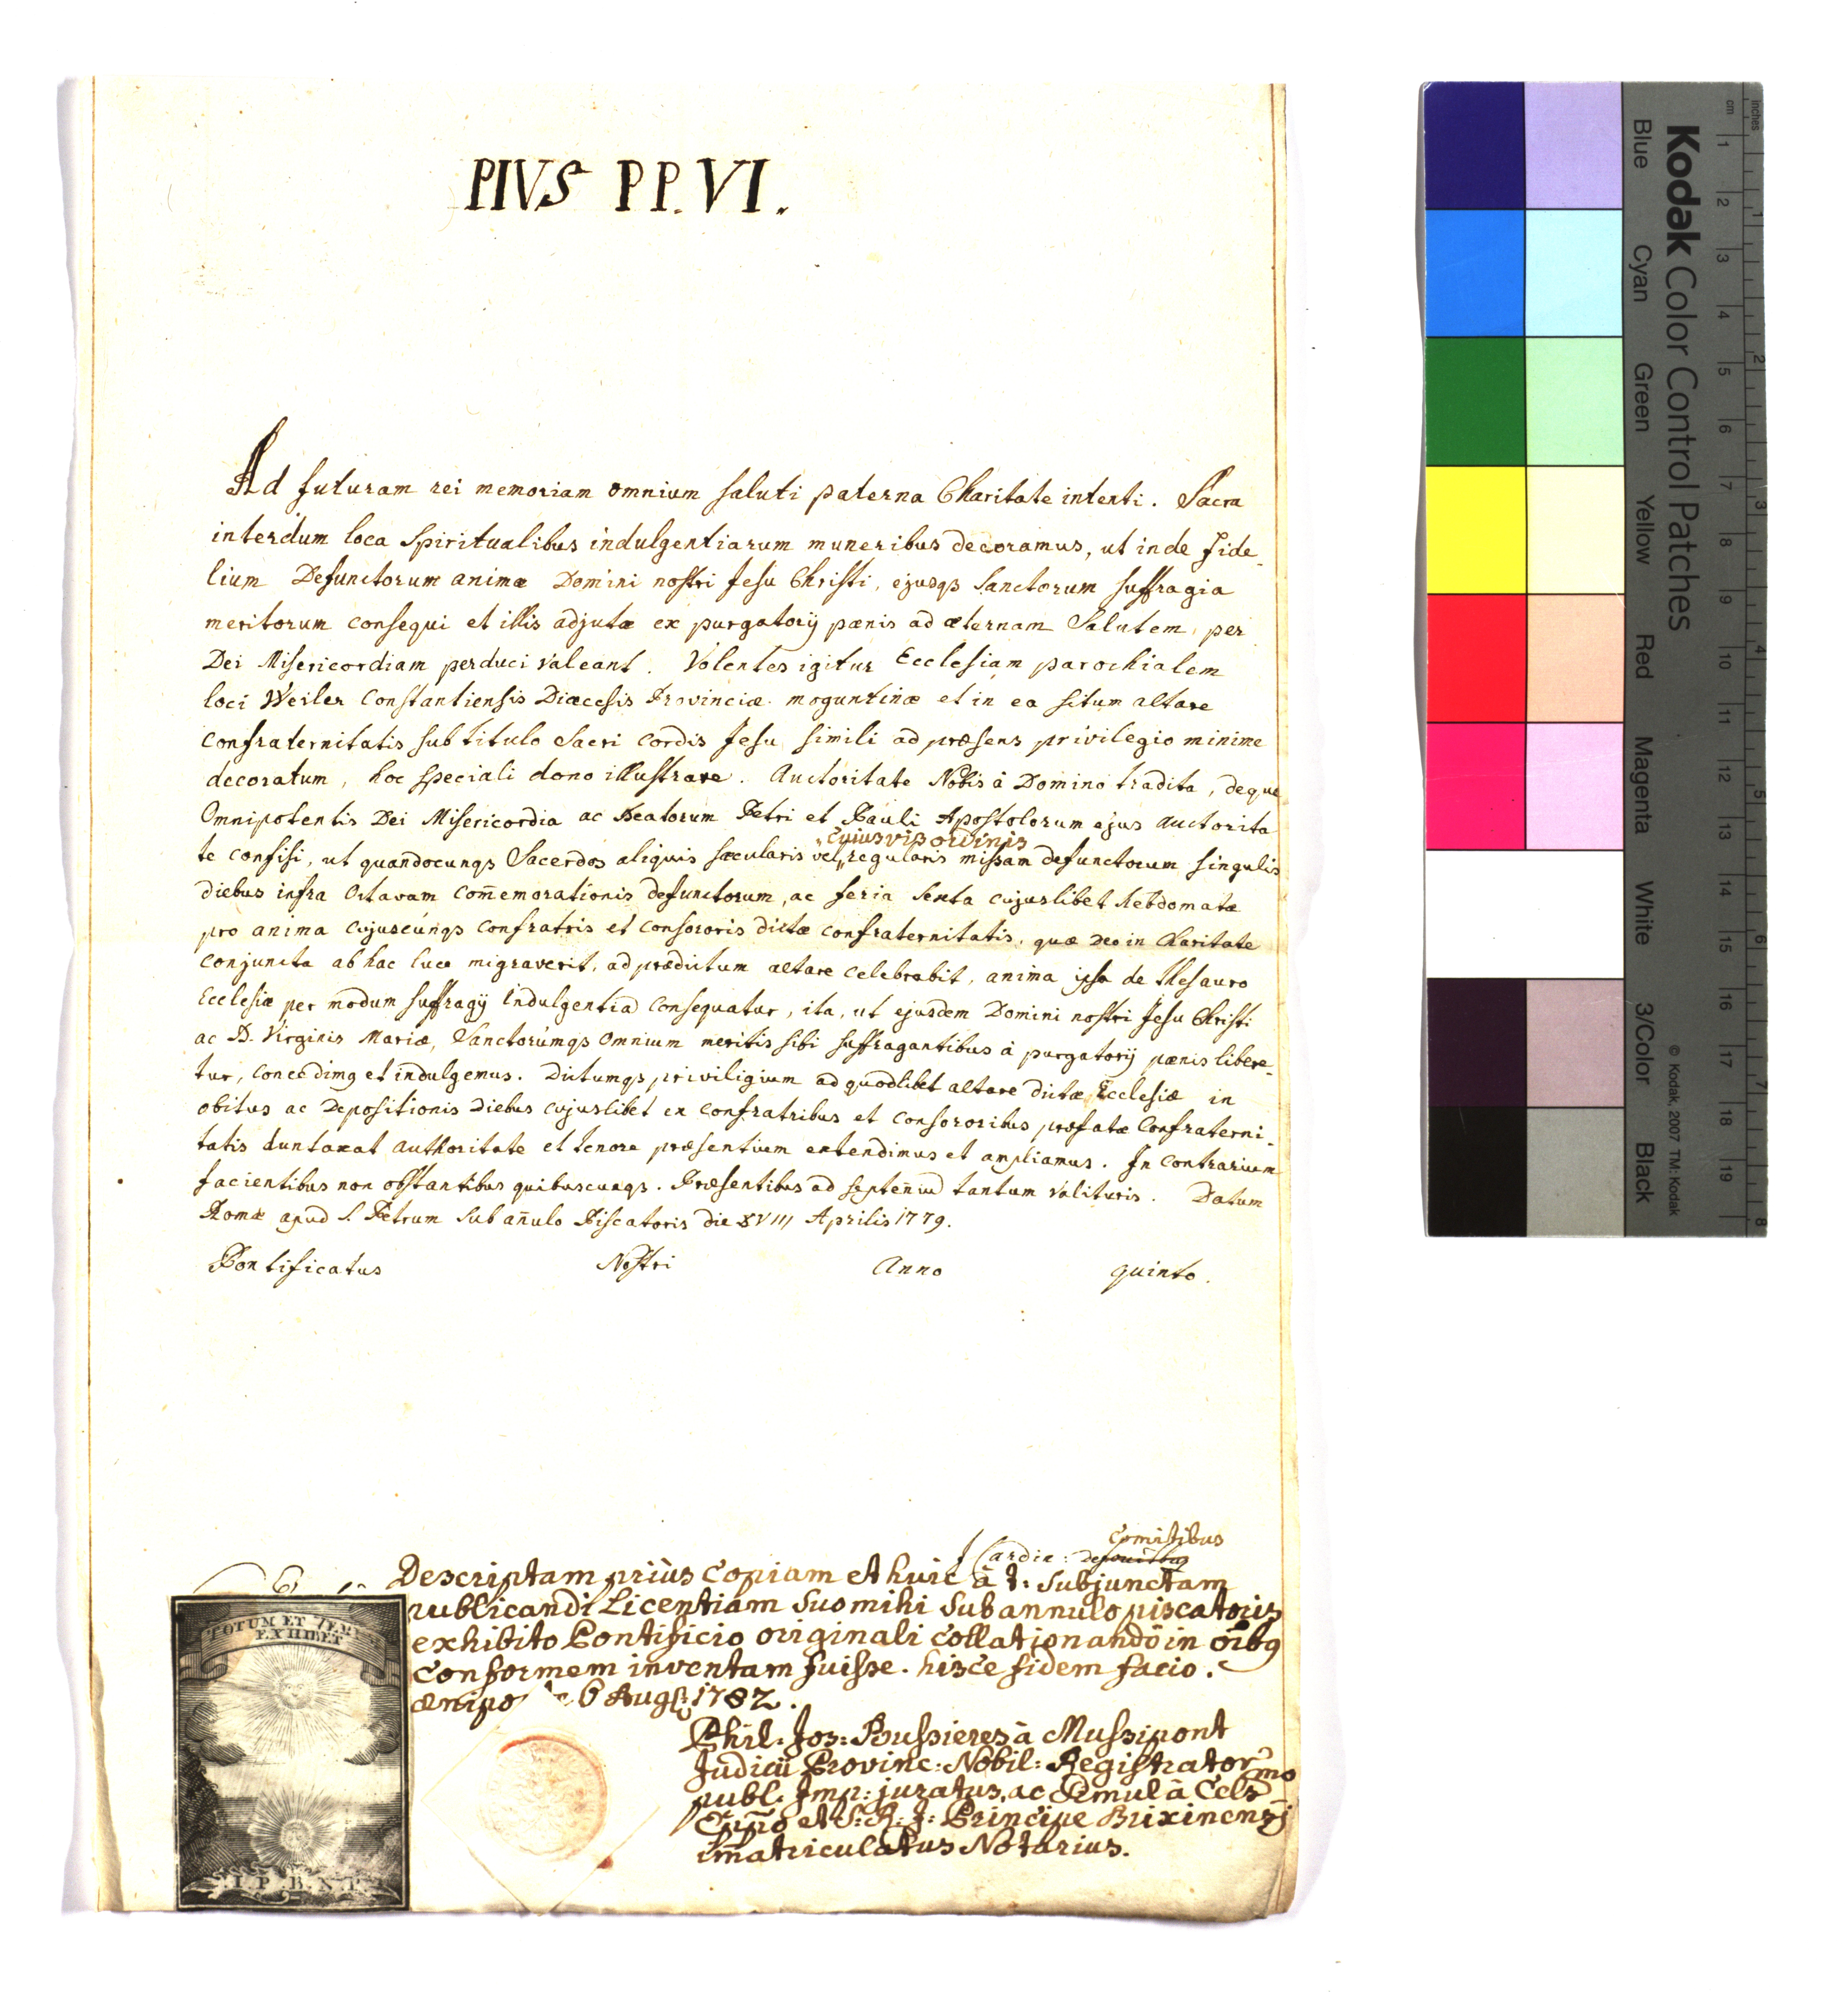 PIVS PP. VI.
Ad futuram rei memoriam omnium saluti paterna Charitate intenti. Sacra
interdum loca Spiritualibus indulgentiarum muneribus decoramus, ut inde fide-
lium Defunctorum animæ Domini nostri Jesu Christi, ejusqs Sanctorum suffragia
meritorum consequi et illis adjutæ ex purgatorij pænis ad æternam Salutem, per
Dei Misericordiam perduci valeant. Volentes igitur Ecclesiam parochialem
loci Weiler Constantiensis Diæcesis Provinciæ moguntinæ et in ea situm altare
Confraternitatis sub titulo Sacri Cordis Jesu, simili ad præsens privilegio minime
decoratum, hoc speciali dono illustrare. Auctoritate Nobis à Domino tradita, deque
Omnipotentis Dei Misericordia ac Beatorum Petri et Pauli Apostolorum ejus auctorita
cujusvis ordinis
te confisi, ut quandocunqs Sacerdos aliquis sæcularis vel regularis missam defunctorum singulis
diebus infra Octavam com̄emorationis defunctorum, ac feria sexta cujuslibet hebdomatæ
pro anima cujuscúnqs confratris et consororis dictæ confraternitatis, quæ Deo in Charitate
conjuncta ab hac luce migraverit, ad prædictum altare celebrabit, anima ipsa de thesauro
Ecclesiæ per modum suffragij indulgentiā consequatur, ita, ut ejusdem Domini nostri Jesu Christi
ac B. Virginis Mariæ, Sanctorúmqs omnium meritis sibi suffragantibus à purgatorij pænis libere-
tur, concedimg et indulgemus. Dictumqs priviligium ad quodlibet altare dictæ Ecclesiæ in
obitus ac Depositionis diebus cujuslibet ex confratribus et consororibus præfatæ Confraterni-
tatis duntaxat authoritate et tenore præsentium extendimus et ampliamus. In contrarium
facientibus non obstantibus quibuscunqs. Præsentibus ad septen̄iū tantum valituris. Datum
Romæ apud S. Petrum sub an̄ulo Piscatoris die XVIII Aprilis 1779.
Pontificatus Nostri Anno quinto.
Comitibus
J Cardin: de
Descriptam priùs Copiam et huic à t: Subjunctam
publicandi Licentiam suo mihi sub annulo piscatoris
exhibito Pontificio originali collationandō in oībg
conformem inventam fuisse. hisce fidem facio.
ænipo 6 Augs 1782.
TOTUM ET
EXHIBET
I. P. B. N. P.
Phil: Jos: Bussieres à Mussipont
Judicij Provinc: Nobil: Registrator
publ: Imp: juratus, ac simul à Cels mo
et S: R: J: Principe Brixinensi
im̄atriculatus Notarius.
Kodak Color Control Patches
Blue Cyan Green Yellow Red Magenta White 3/Color Black
© Kodak, 2007 TM: Kodak
cm 1 2 3 4 5 6 7 8 9 10 11 12 13 14 15 16 17 18 19
inches 1 2 3 4 5 6 7 8